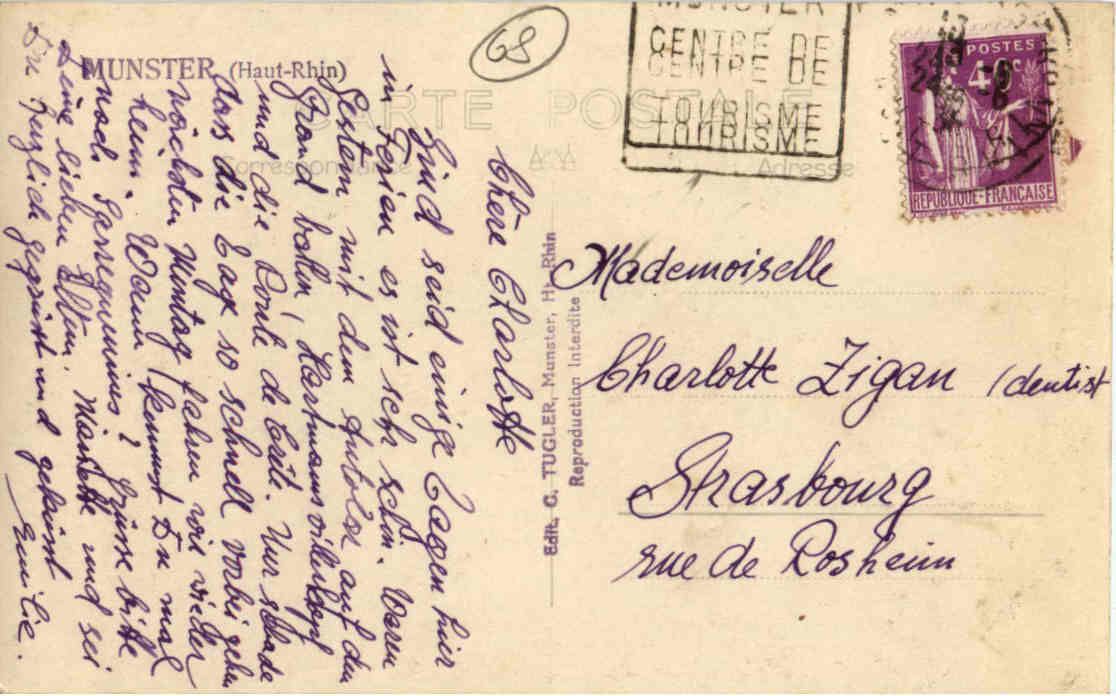 MUNSTER (Haut-Rhin)
CARTE POSTALE
Correspondance
Adresse
68
MUNSTER
CENTRE DE
CENTRE DE
TOURISME
TOURISME
POSTES
40c
REPUBLIQUE-FRANÇAISE
Chère Charlotte
Sind seid einige Tagen hier
in Ferien es ist sehr schön. Waren
Gestern mit dem Autocar auf dem
Grand ballon, Hartmansvillerkopf
und die Route de Crête. Nur schade
dass die Tage so schnell vorbei gehen
nächsten Montag fahren wir wieder
heim. Wann kommst Du mal
nach Sarreguemines? Grüsse bitte
Deine lieben Eltern, und sei
Du herzlich gegrüsst und geküsst
Emilie.
Edit. C. TUGLER, Munster, Ht-Rhin
Reproduction Interdite
Mademoiselle
Charlotte Zigan (dentist
Strasbourg
rue de Rosheim